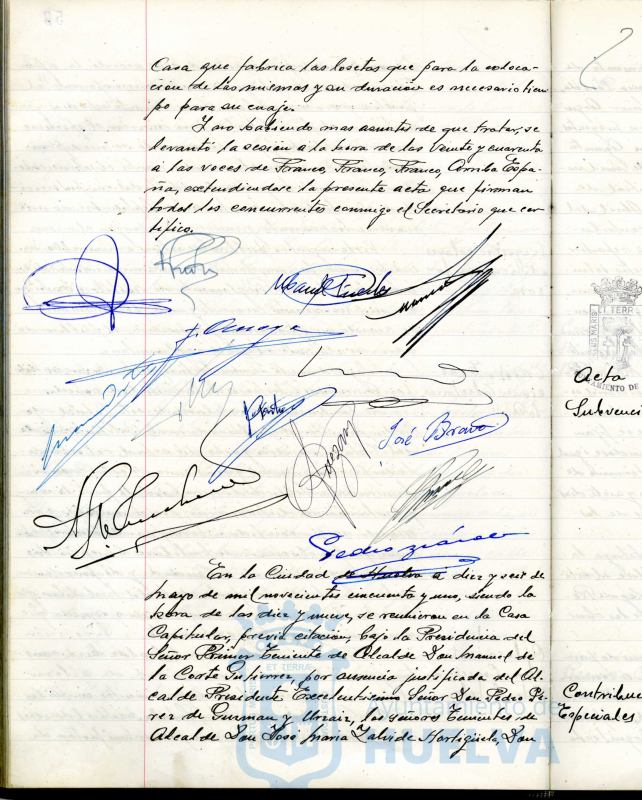 Casa que fabrica las losetas que para la coloca-
ción de las mismas y su duración es necesario tiem-
po para su cuaje.
Y no habiendo mas asuntos de que tratar, se
levantó la sesión a la hora de las veinte y cuarenta
a las voces de Franco, Franco, Franco, Arriba Espa-
ña, extendiendose la presente acta que firman
todos los concurrentes conmigo el Secretario que cer-
tifico.
José Bravo
Pedro
En la Ciudad de Huelva a diez y seis de
mayo de mil novecientos cincuenta y uno, siendo la
hora de las diez y nueve, se reunieron en la Casa
Capitular, previa citación, bajo la Presidencia del
Señor Primer Teniente de Alcalde Don Manuel de
la Corte Gutierrez, por ausencia justificada del Al-
calde Presidente Excelentisimo Señor Don Pedro Pé-
rez de Guzman y Urzaiz, los señores Tenientes de
Alcalde Don José Maria Zalvide Hortigüela, Don
Acta
Subvenci
Contribuc
Especiales
ET TERRÆ
Ayuntamiento de
HUELVA